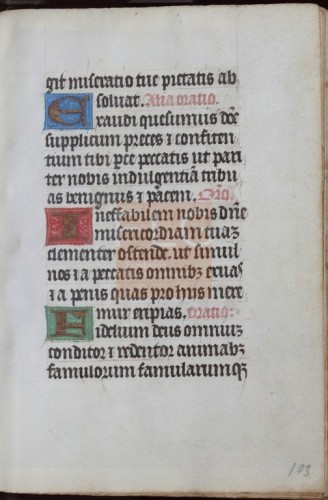 git miseratio tue pietatis ab
soluat. Alia oratio.
Exaudi quesumus dñe
supplicum preces & confiten
tium tibi pce peccatis ut pari
ter nobis indulgentiã tribu
as benignus & pacem. Oro.
Ineffabilem nobis dñe
misericordiam tuaz
clementer ostende. ut simul
nos & a peccatis omnibꝫ exuas
& a penis quas pro hiis mere
mur eripias. Oratio.
Fidelium deus omniuz
conditor & redemtor animabꝫ
famulorum famularumqꝫ
103